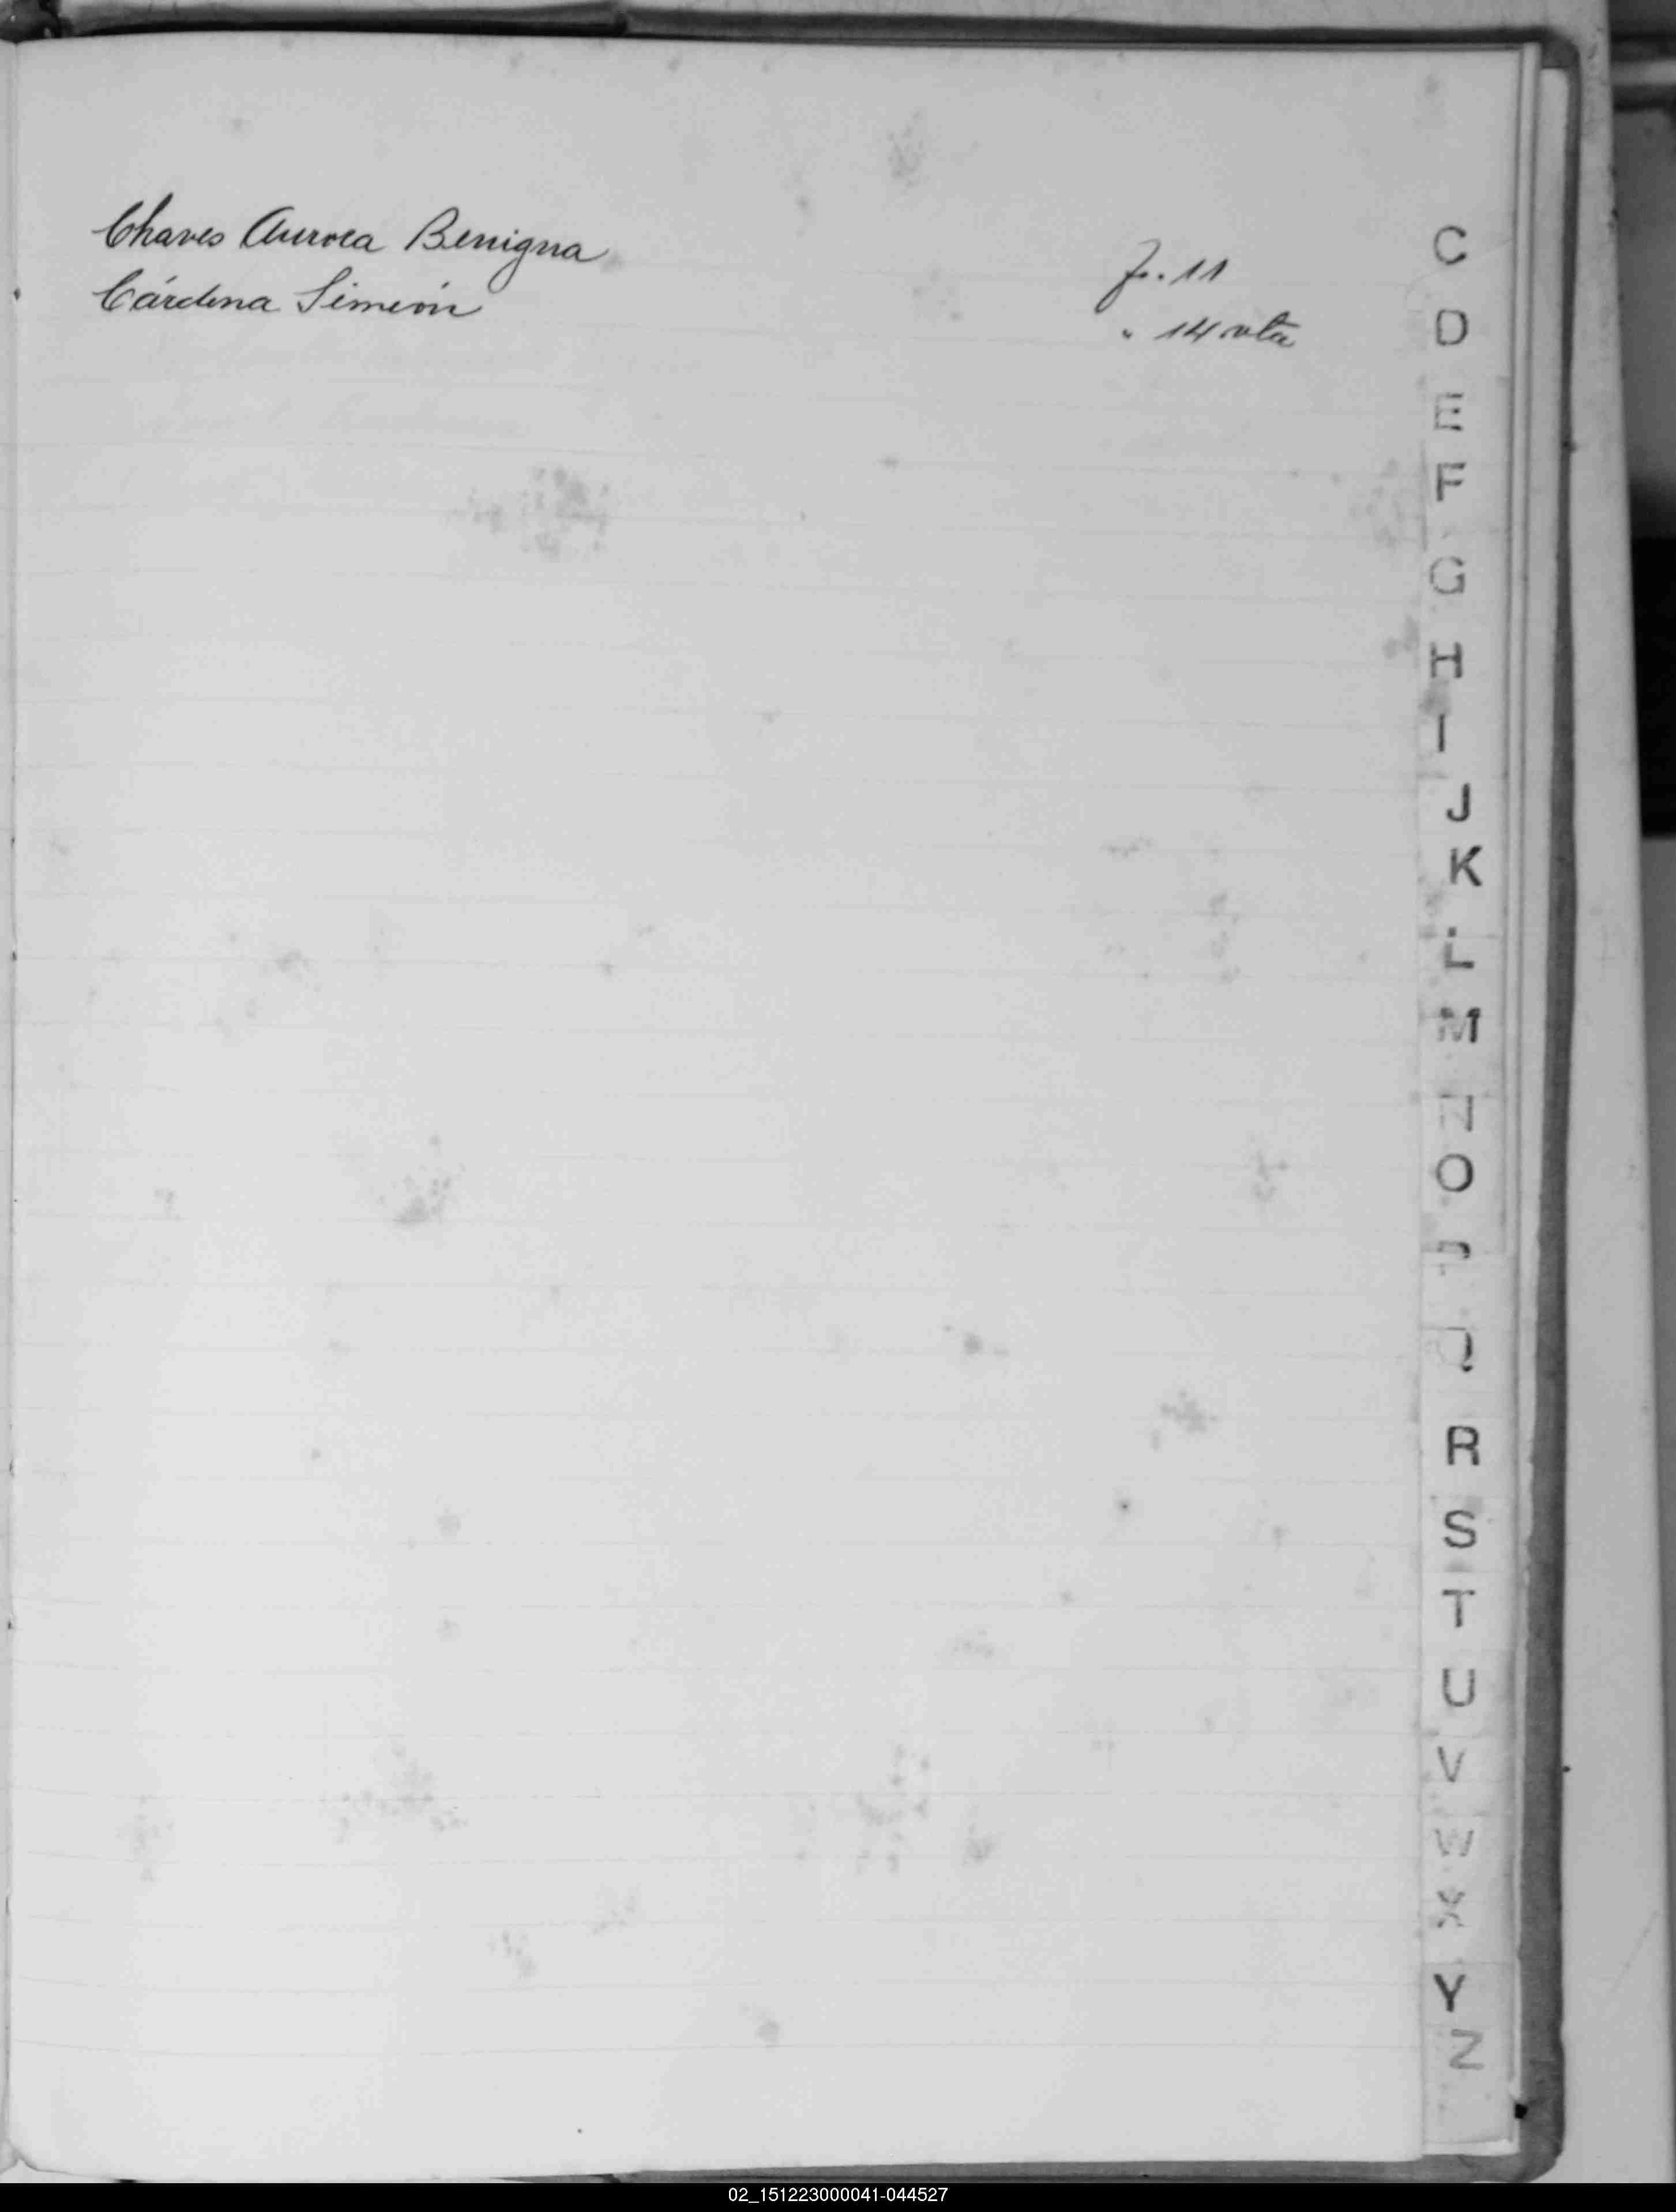 Chaves Aurora Benigna fs. 11
Cárdena Simeón " 14 vta
C
D
E
F
G
H
I
J
K
L
M
N
O
P
Q
R
S
T
U
V
W
X
Y
Z
02_151223000041-044527